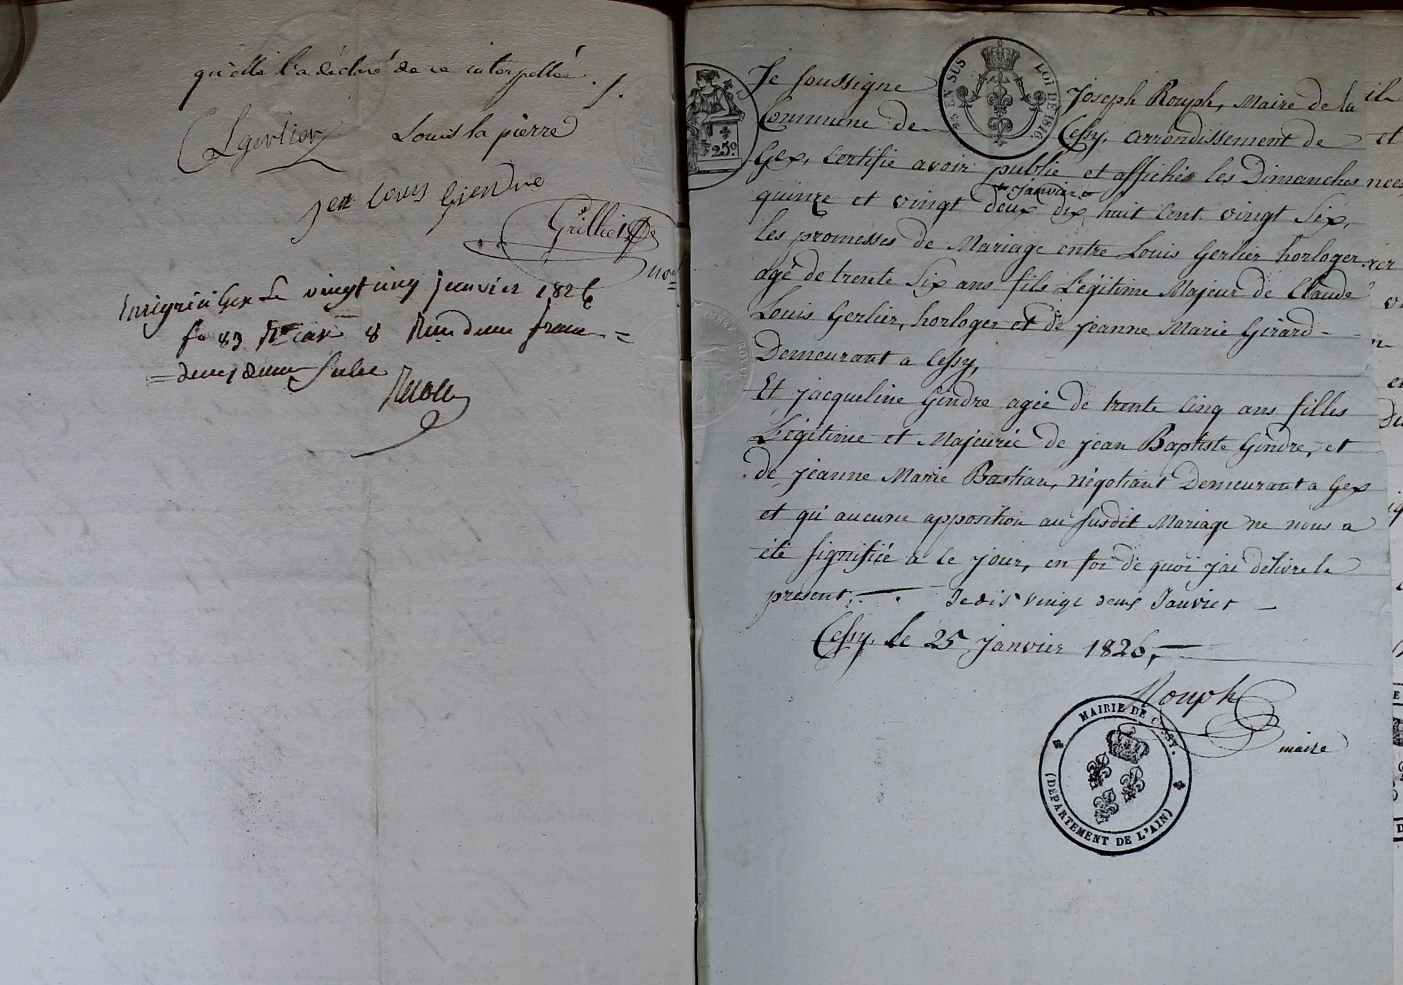 qu'elle l'a déclaré de ce interpellée
CLgerlier Louis la pierre
jean louis Gendre
Grilliet
Enrégré à Gex Le vingt cinq janvier 1826
fo 83 Ro Cas 8 Reçu deux francs
Je soussigné Joseph Rouph, Maire de la
Commune de Cessy, arrondissement de
Gex, Certifie avoir publié et affiché les Dimanches
quinze et vingt deux Janvier dix huit Cent vingt Six,
les promesses de Mariage entre Louis Gerlier horloger
agé de trente Six ans fils Légitime Majeur de Claude
Louis Gerlier, horloger et de jeanne Marie Girard
Demeurant a Cessy,
Et jacqueline Gindre agée de trente Cinq ans filles
Légitime et Majeurie de jean Baptiste Gindre, et
de jeanne Marie Bastian, négotiant Demeurant a Gex
et qu'aucune apposition au susdit Mariage ne nous a
été signifiée a ce jour, en foi de quoi j'ai délivré le
présent. Je dis vingt deux Janvier
Cessy, le 25 janvier 1826,
Rouph
maire
25 EN SUS LOI DE 1816
25c
MAIRIE DE CESSY.
(DÉPARTEMENT DE L'AIN)